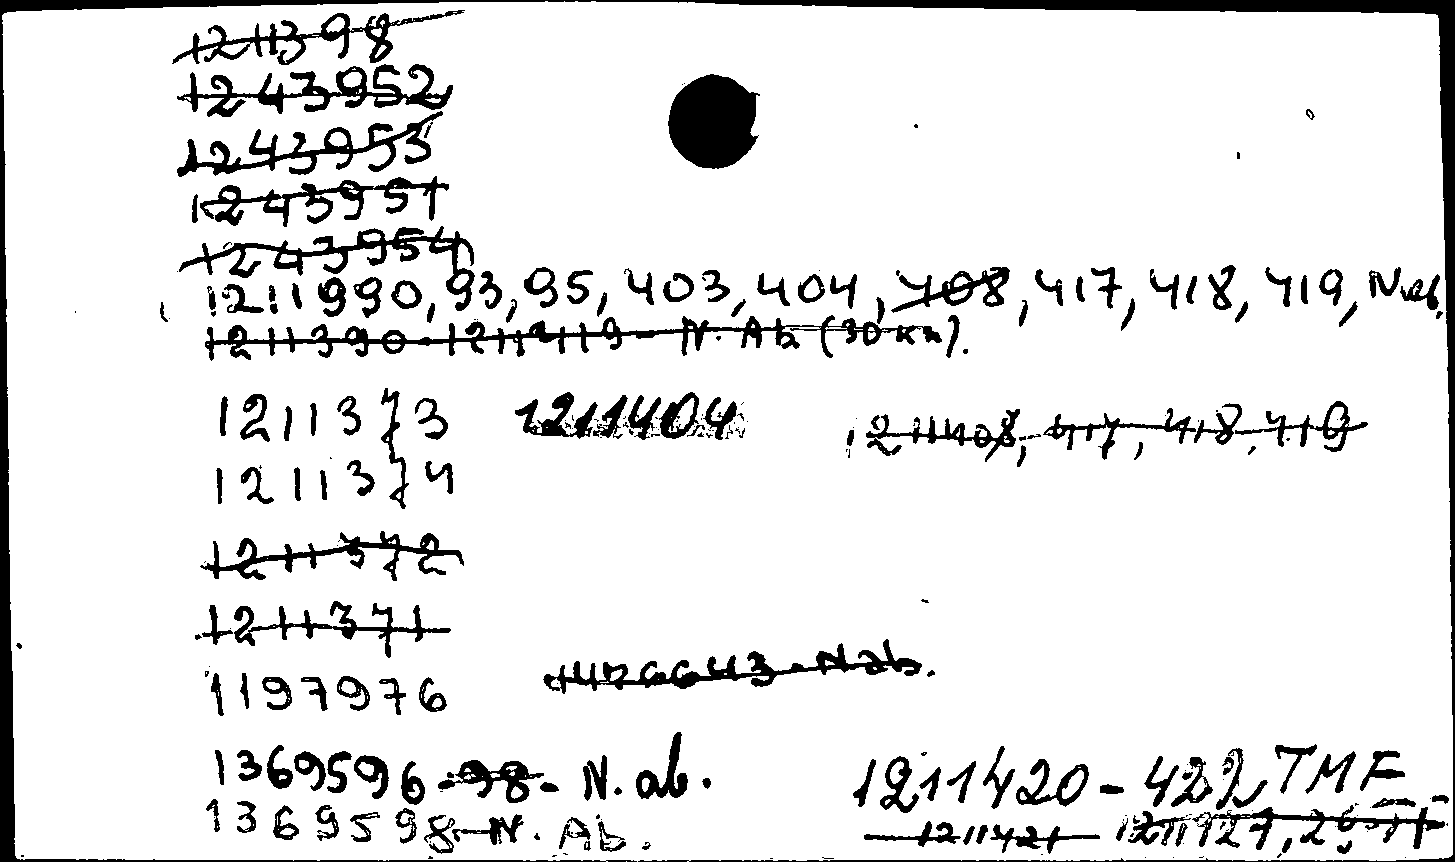 1211398
1243952
1243953
1243951
1243954
1211990, 93, 95, 403, 404, 408, 417, 418, 419, N.ab.
1211390-1211419- N. Ab (30 км).
1211373 1211404 1211408, 417, 418, 419
1211374
1211372
1211371
1197976 N ab.
1369596-98- N. ab.
1211420-422 TMF
1369598-N. Ab.
1211421